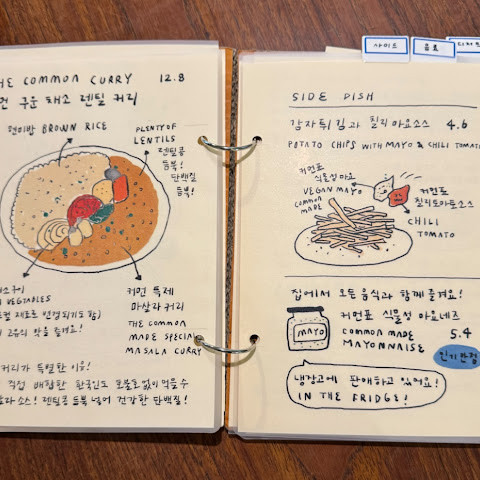 THE COMMON CURRY 12.8
구운 채소 렌틸 커리
현미밥 BROWN RICE
PLENTY OF
LENTILS
렌틸콩
듬뿍!
단백질
듬뿍!
VEGETABLES
커먼 특제
마살라 커리
THE COMMON
MADE SPECIAL
MASALA CURRY
커리가 특별한 이유!
직접 배합한 한국인도 호불호없이 먹을 수
소스! 렌틸콩 듬뿍 넣어 건강한 단백질!
사이드
음료
디저트
SIDE DISH
감자튀김과 칠리마요소스 4.6
POTATO CHIPS WITH MAYO & CHILI TOMATO
커먼표
식물성 마요
VEGAN MAYO
COMMON
MADE
커먼표
칠리토마토소스
CHILI
TOMATO
집에서 모든 음식과 함께 즐겨요!
커먼표 식물성 마요네즈
MAYO
COMMON MADE 5.4
MAYONNAISE
인기만점
냉장고에 판매하고 있어요!
IN THE FRIDGE!